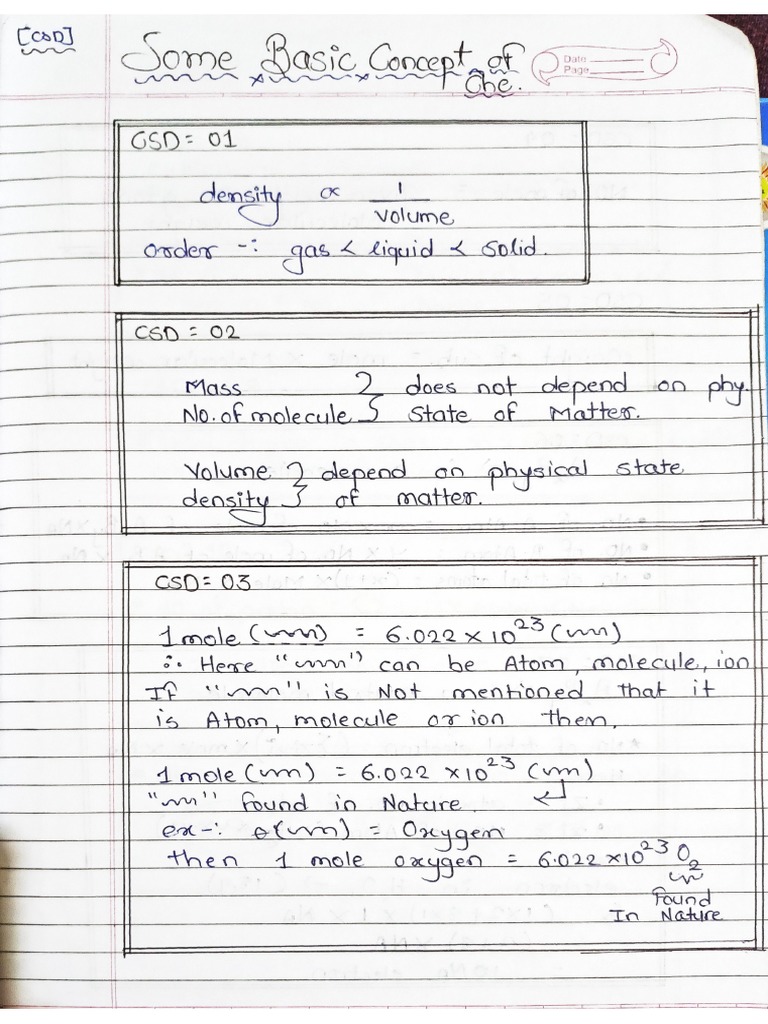 [CSD]
Some Basic Concept of
Che.
Date
Page
CSD = 01
density ∝ 1
volume
order -: gas < liquid < solid.
CSD = 02
Mass } does not depend on phy.
No. of molecule } State of Matter.
Volume } depend on physical state
density } of matter.
CSD = 03
1 mole (~~~) = 6.022 × 10²³ (~~~)
∴ Here "~~~" can be Atom, molecule, ion
If "~~~" is Not mentioned that it
is Atom, molecule or ion then,
1 mole (~~~) = 6.022 × 10²³ (~~~)
"~~~" found in Nature.
ex -: (~~~) = Oxygen
then 1 mole oxygen = 6.022 × 10²³ O₂
found
In Nature